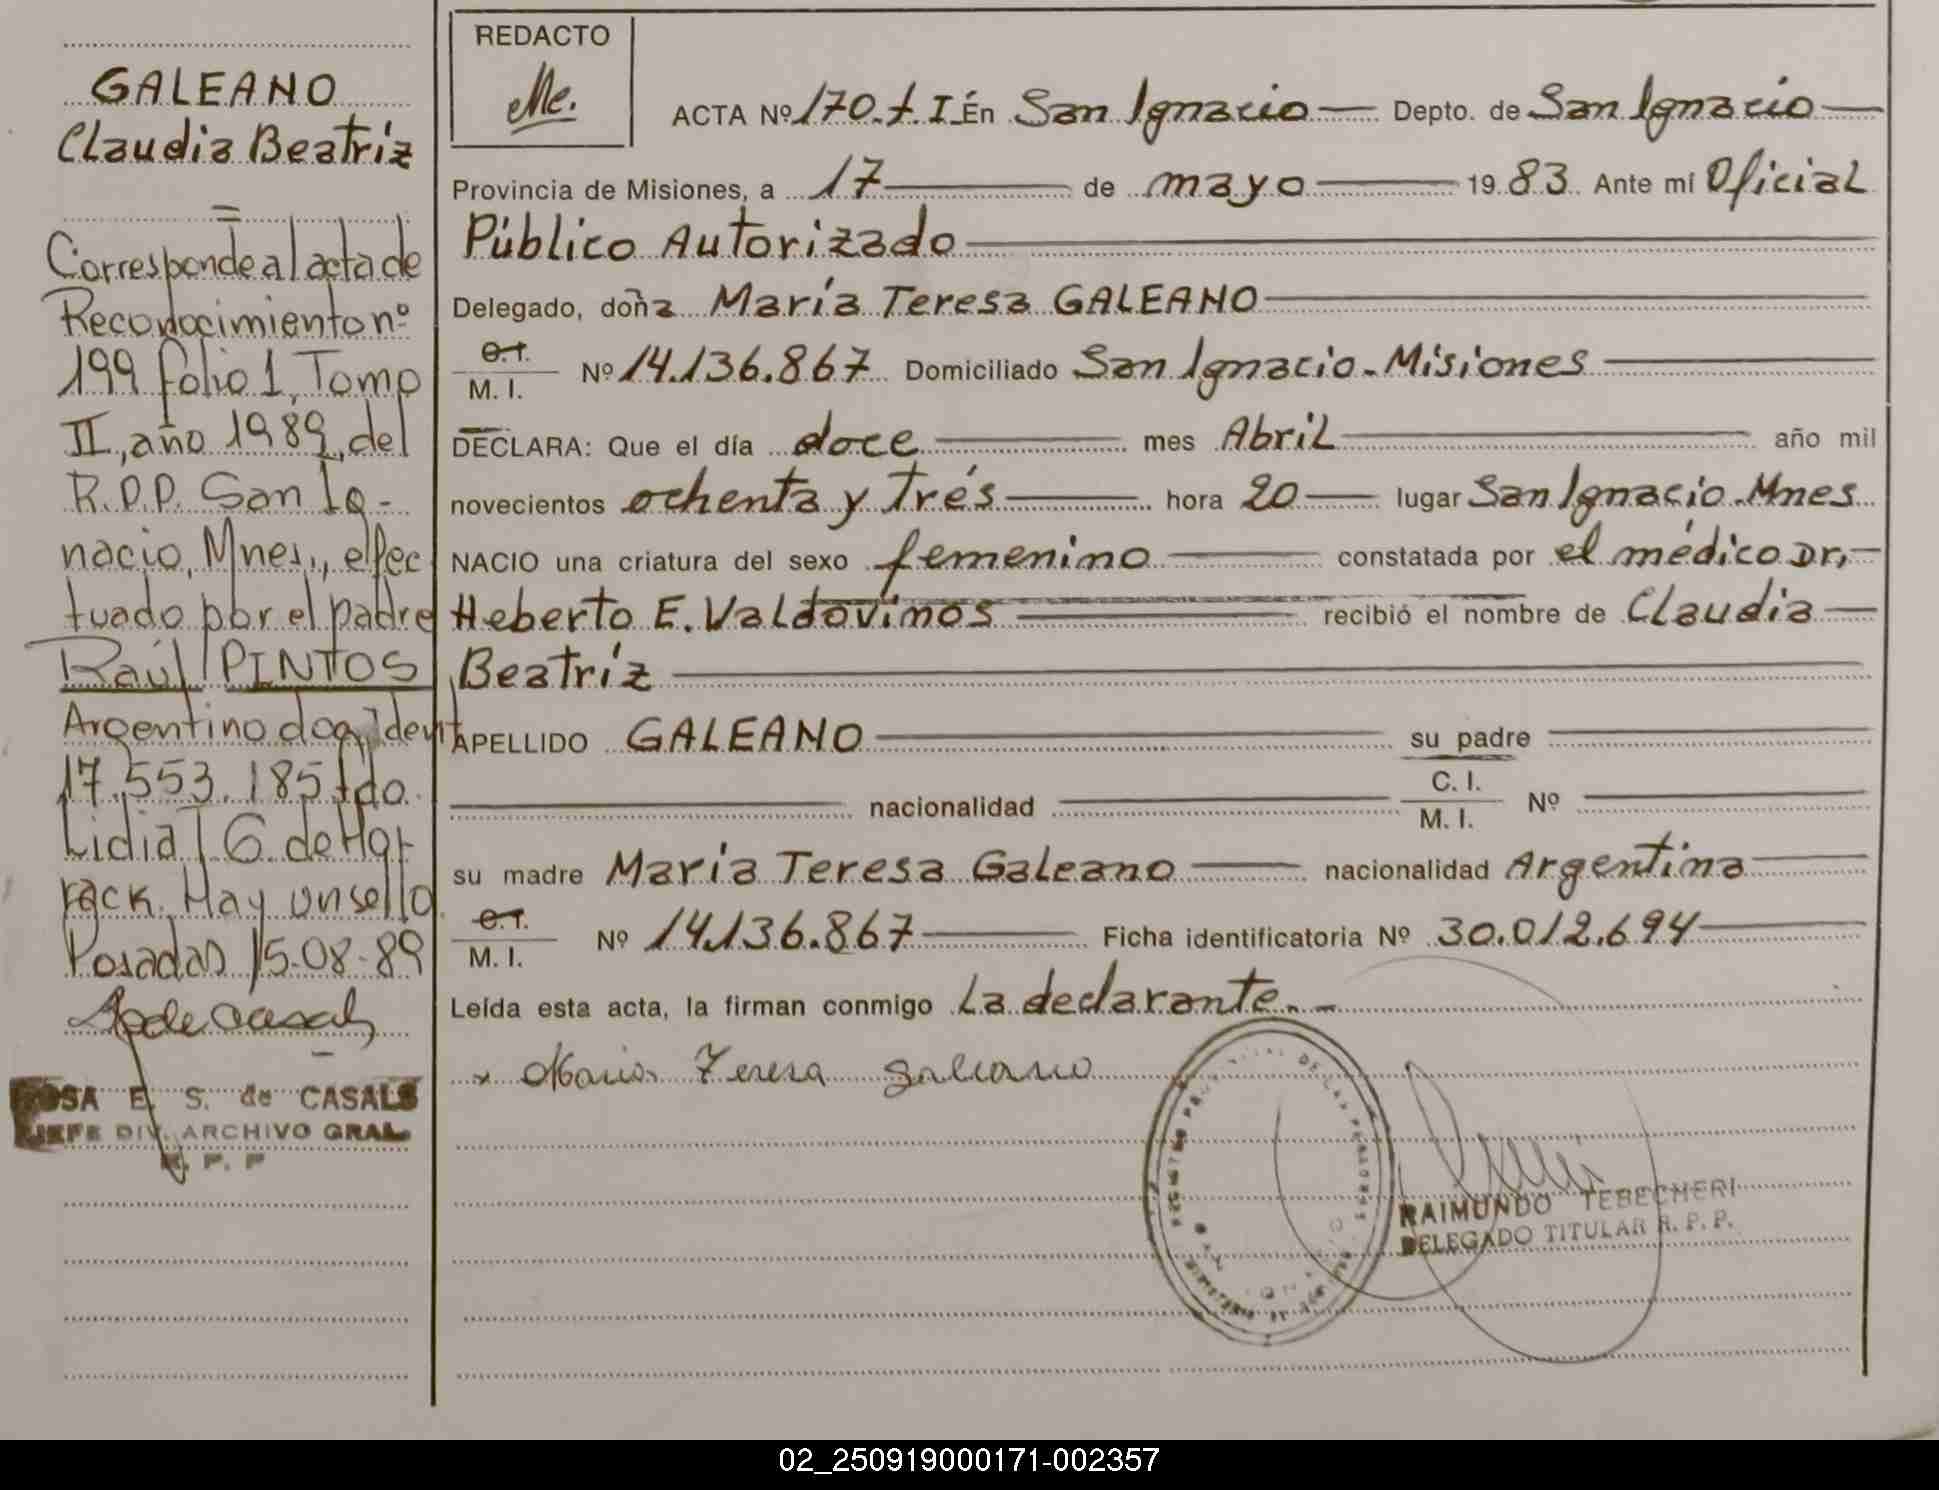 GALEANO
Claudia Beatriz
=
Corresponde al acta de
Reconocimiento nº
199 folio 1, Tomo
II, año 1989, del
R.P.P. San Ig-
nacio, Mnes., efec
tuado por el padre
Raúl PINTOS
Argentino doc. Ident
17.553.185 fdo.
Lidia T G. de Hor
rack. Hay un sello
Posadas 15-08-89
ROSA E. S. de CASALS
JEFE DIV. ARCHIVO GRAL.
R. P. P
REDACTO
ACTA Nº 170. t. I En San Ignacio Depto. de San Ignacio
Provincia de Misiones, a 17 de mayo 19 83 Ante mí Oficial
Público Autorizado
Delegado, doña María Teresa GALEANO
C.I.
M. I. Nº 14.136.867 Domiciliado San Ignacio - Misiones
DECLARA: Que el día doce mes Abril año mil
novecientos ochenta y trés hora 20 lugar San Ignacio - Mnes
NACIO una criatura del sexo femenino constatada por el médico Dr,
Heberto E. Valdovinos recibió el nombre de Claudia
Beatríz
APELLIDO GALEANO su padre
nacionalidad C. I.
M. I. Nº
su madre María Teresa Galeano nacionalidad Argentina
C.I.
M. I. Nº 14.136.867 Ficha identificatoria Nº 30.012.694
Leída esta acta, la firman conmigo La declarante.-
x Maria Teresa galeano
RAIMUNDO TEBECHERI
DELEGADO TITULAR R. P. P.
02_250919000171-002357